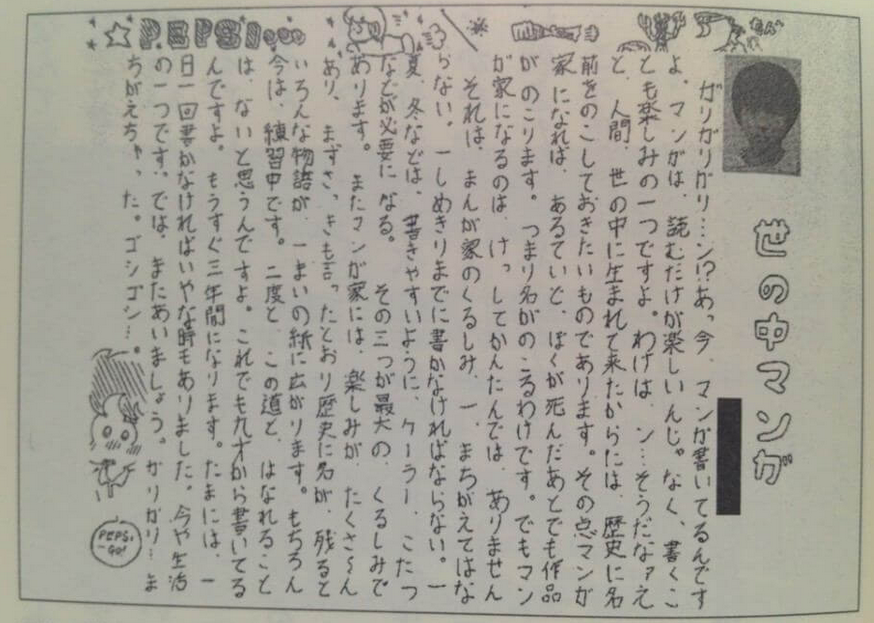 PEPSI
世の中マンガ
ガリガリガリ…ン!?あっ今、マンガ書いてるんです
よ。マンガは、読むだけが楽しいんじゃなく、書くこ
とも楽しみの一つですよ。わけは、ン…そうだなァえ
と、人間、世の中に生まれて来たからには、歴史に名
前をのこしておきたいものであります。その点マンガ
家になれば、あるていど、ぼくが死んだあとでも作品
がのこります。つまり名がのこるわけです。でもマン
が家になるのは、けっしてかんたんでは、ありません
それは、まんが家のくるしみ、一、まちがえてはな
らない。一しめきりまでに書かなければならない。一
夏、冬などは、書きやすいように、クーラー、こたつ
などが必要になる。その三つが最大の、くるしみで
あります。またマンが家には、楽しみが、たくさ〜ん
あり、まずさっきも言ったとおり歴史に名が、残ると
いろんな物語が、一まいの紙に広がります。もちろん
今は、練習中です。二度と、この道と、はなれること
は、ないと思うんですよ。これでも九才から書いてる
んですよ。もうすぐ三年間になります。たまには、一
日一回書かなければいやな時もありました。今や生活
の一つです。では、またあいましょう。ガリガリ…ま
ちがえちゃった。ゴシゴシ…。
PEPSI
-GO!